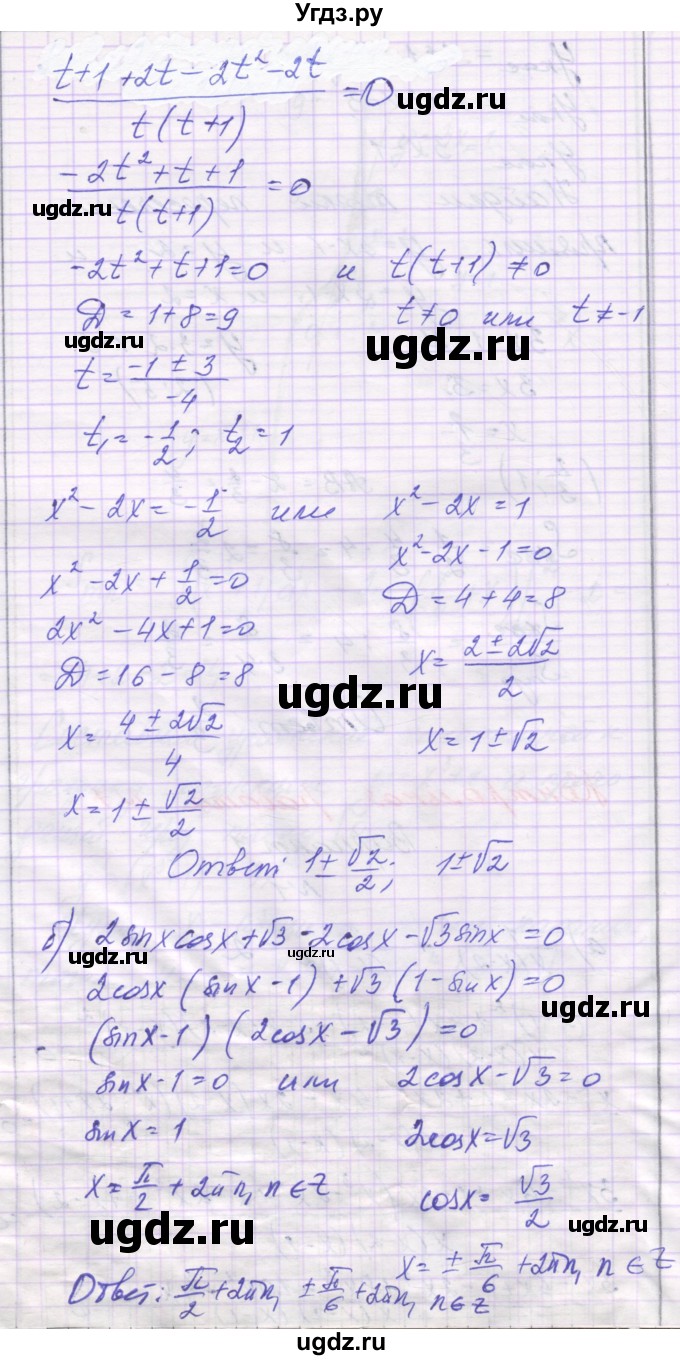 Угдз.ру
t+1+2t-2t²-2t / t(t+1) = 0
ugdz.ru
-2t²+t+1 / t(t+1) = 0
ugdz.ru
-2t²+t+1=0 и t(t+1)≠0
Д=1+8=9 t≠0 или t≠-1
ugdz.ru ugdz.ru
t= -1±3 / -4
t₁=-1/2; t₂=1
ugdz.ru
x²-2x=-1/2 или x²-2x=1
x²-2x-1=0
x²-2x+1/2=0 Д=4+4=8
ugdz.ru
2x²-4x+1=0
x= 2±2√2 / 2
Д=16-8=8
ugdz.ru ugdz.ru
x= 4±2√2 / 4 x=1±√2
x=1±√2/2
ugdz.ru
Ответ: 1±√2/2; 1±√2
б) 2sinxcosx+√3-2cosx-√3sinx=0
ugdz.ru
2cosx(sinx-1)+√3(1-sinx)=0
ugdz.ru
(sinx-1)(2cosx-√3)=0
sinx-1=0 или 2cosx-√3=0
ugdz.ru
sinx=1 2cosx=√3
x=π/2+2πn, n∈Z cosx=√3/2
ugdz.ru ugdz.ru
x=±π/6+2πn, n∈Z
Ответ: π/2+2πn, ±π/6+2πn, n∈Z
ugdz.ru ugdz.ru